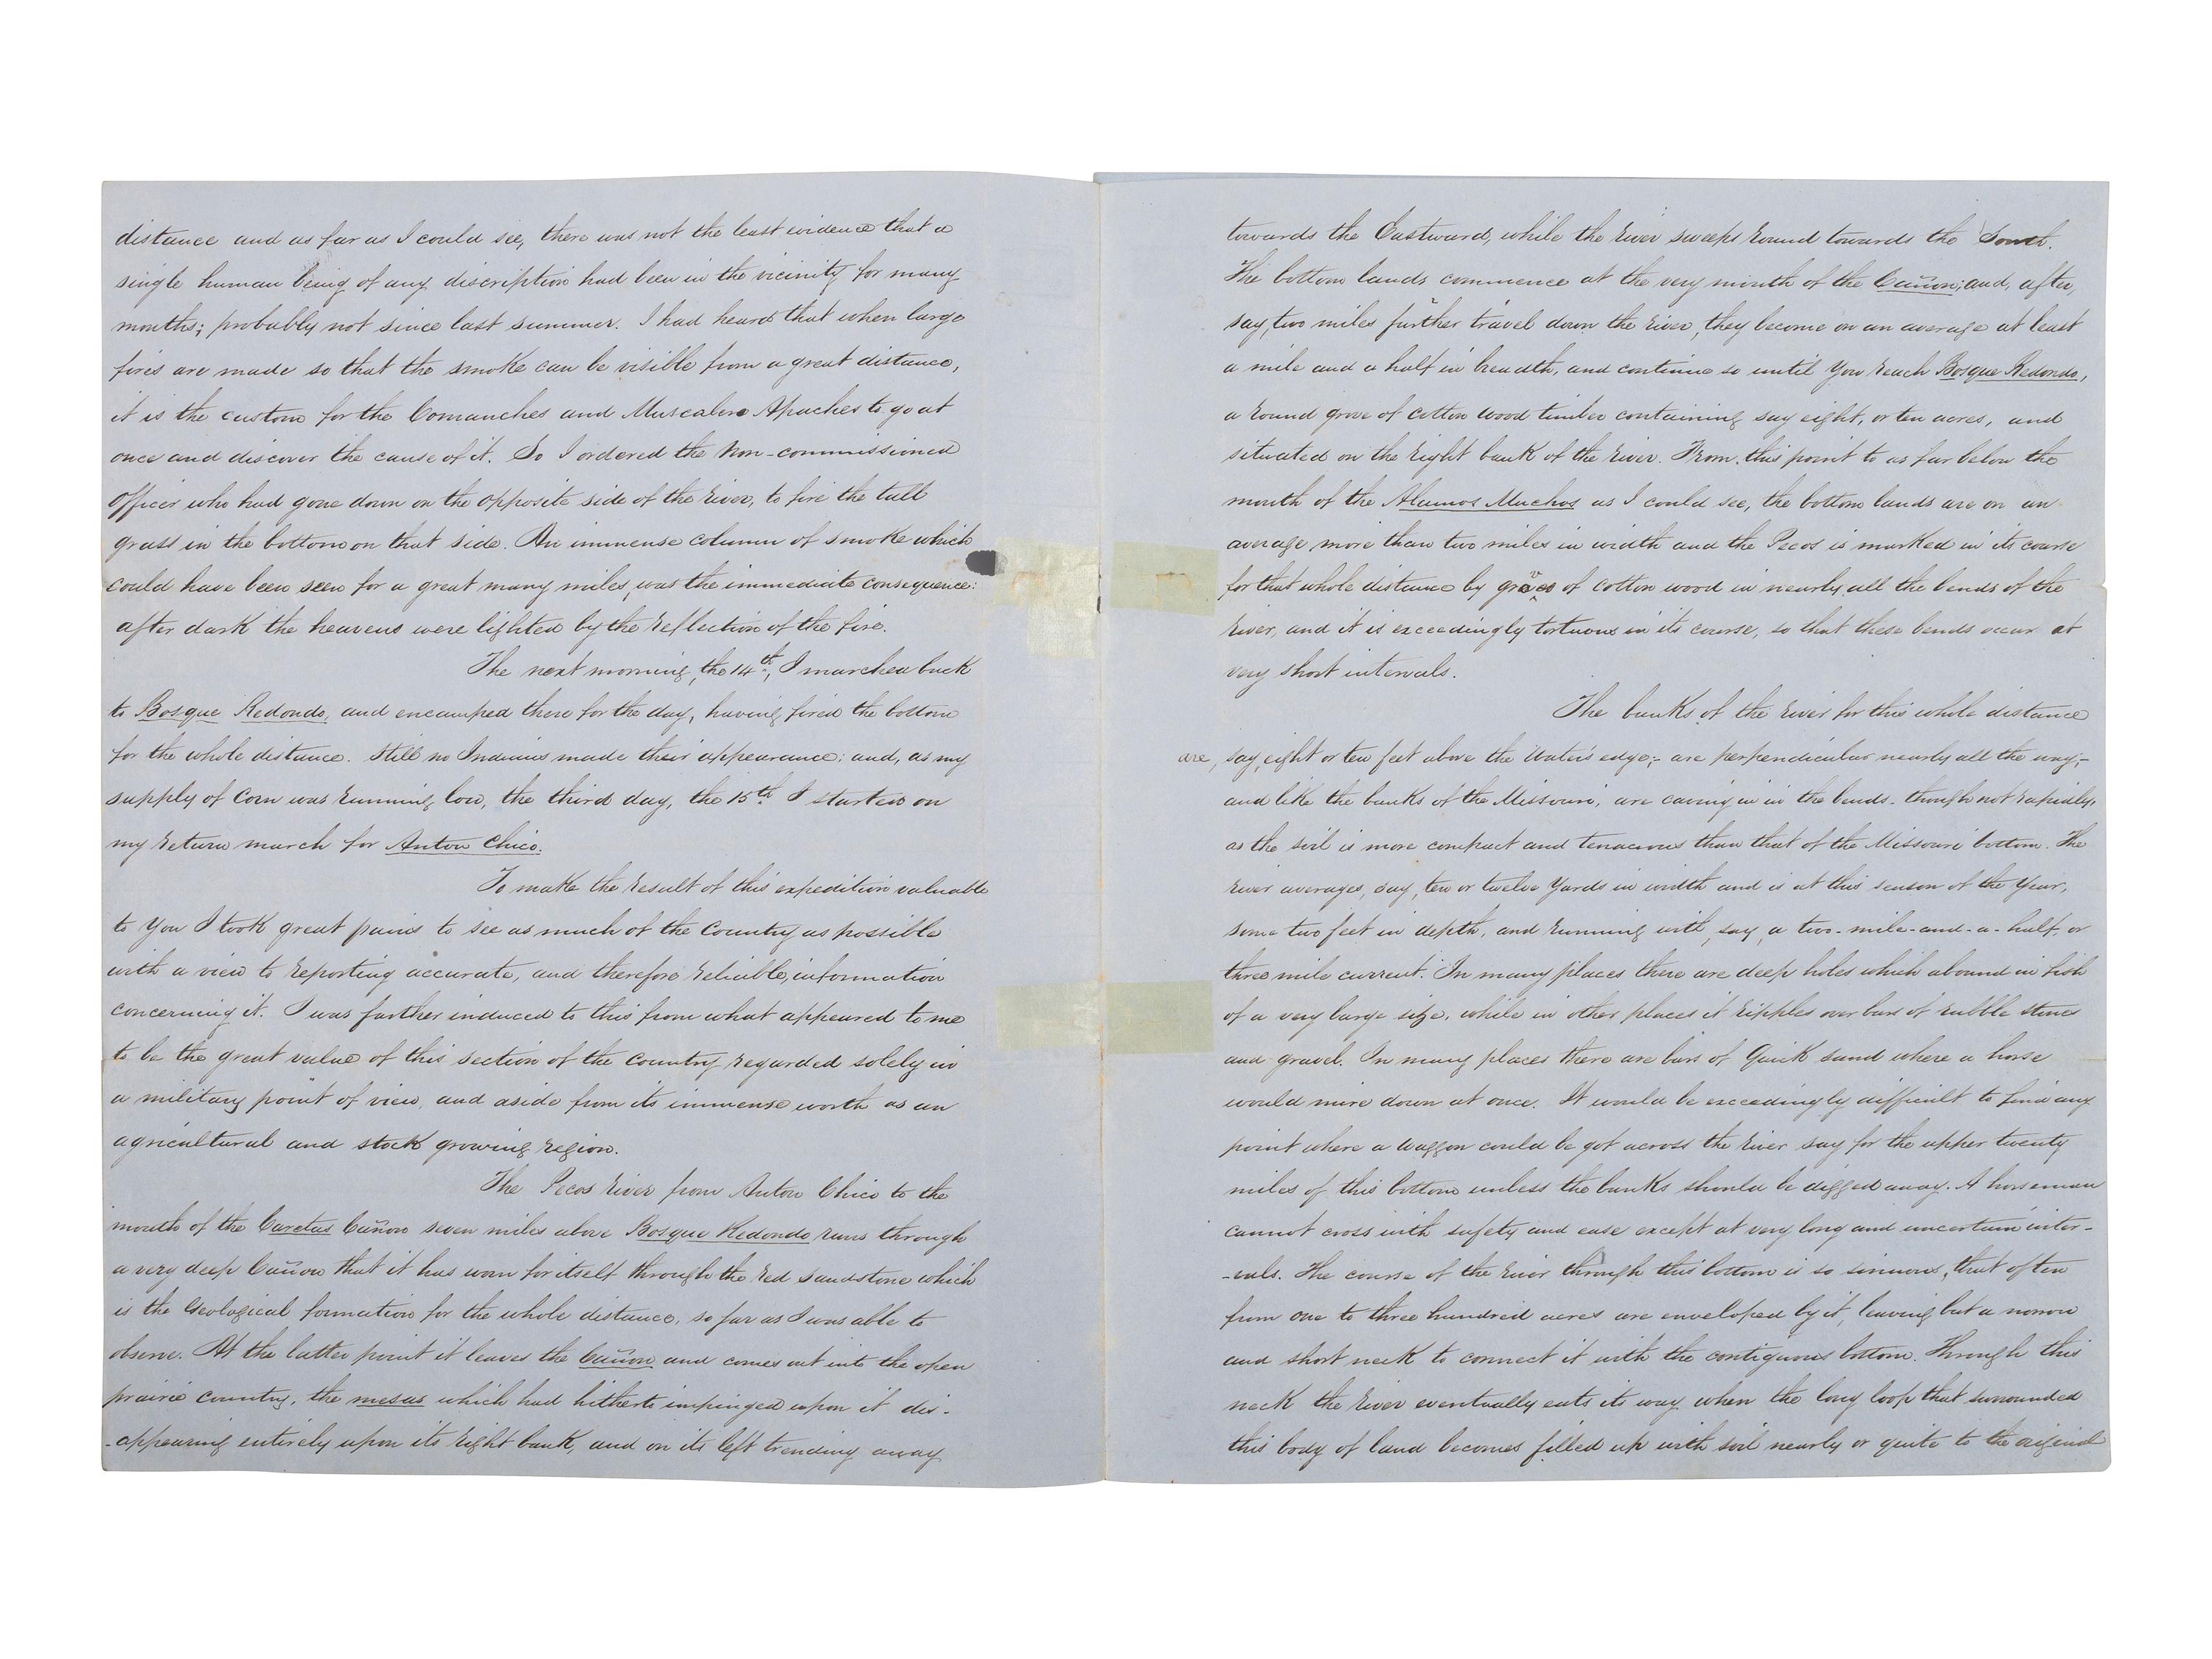 distance and as far as I could see, there was not the least evidence that a
single human being of any discription had been in the vicinity for many
months; probably not since last summer. I had heard that when large
fires are made so that the smoke can be visible from a great distance,
it is the custom for the Comanches and Muscalero Apaches to go at
once and discover the cause of it. So I ordered the Non-commissioned
Officer who had gone down on the opposite side of the river, to fire the tall
grass in the bottom on that side. An immense column of smoke which
could have been seen for a great many miles, was the immediate consequence:
after dark the heavens were lighted by the reflection of the fire.
The next morning, the 14th, I marched back
to Bosque Redondo, and encamped there for the day, having fired the bottom
for the whole distance. Still no Indians made their appearance; and, as my
supply of Corn was running low, the third day, the 15th I started on
my return march for Anton Chico.
To make the result of this expedition valuable
to You I took great pains to see as much of the Country as possible
with a view to reporting accurate, and therefore reliable, information
concerning it. I was further induced to this from what appeared to me
to be the great value of this section of the Country regarded solely in
a military point of view, and aside from its immense worth as an
agricultural and stock growing region.
The Pecos River from Anton Chico to the
mouth of the Caretas Cañon seven miles above Bosque Redondo runs through
a very deep Cañon that it has worn for itself through the red sandstone which
is the Geological formation for the whole distance, so far as I was able to
observe. At the latter point it leaves the Cañon and comes out into the open
prairie country, the mesas which had hitherto impinged upon it dis-
-appearing entirely upon its right bank, and on its left trending away
towards the Eastward, while the river sweeps round towards the South.
The bottom lands commence at the very mouth of the Cañon; and, after,
say, two miles further travel down the river, they become on an average at least
a mile and a half in breadth, and continue so until You reach Bosque Redondo,
a round grove of cotton wood timber containing say eight, or ten acres, and
situated on the right bank of the river. From this point to as far below the
mouth of the Alamos Muchos as I could see, the bottom lands are on an
average more than two miles in width and the Pecos is marked in its course
for that whole distance by groves of cotton wood in nearly all the bends of the
river, and it is exceedingly tortuous in its course, so that these bends occur at
very short intervals.
The banks of the river for this whole distance
are, say, eight or ten feet above the water's edge;- are perpendicular nearly all the way;-
and like the banks of the Missouri, are caving in in the bends- though not rapidly,
as the soil is more compact and tenacious than that of the Missouri bottom. The
river averages, say, ten or twelve Yards in width and is at this season of the Year,
some two feet in depth, and running with, say, a two-mile-and-a-half, or
three mile current. In many places there are deep holes which abound in fish
of a very large size, while in other places it ripples over bars of rubble stones
and gravel. In many places there are bars of Quick sand where a horse
would mire down at once. It would be exceedingly difficult to find any
point where a waggon could be got across the river say for the upper twenty
miles of this bottom unless the banks should be digged away. A horseman
cannot cross with safety and ease except at very long and uncertain inter-
-vals. The course of the river through this bottom is so sinuous, that often
from one to three hundred acres are enveloped by it, leaving but a narrow
and short neck to connect it with the contiguous bottom. Through this
neck the river eventually eats its way when the long loop that surrounded
this body of land becomes filled up with soil nearly or quite to the original